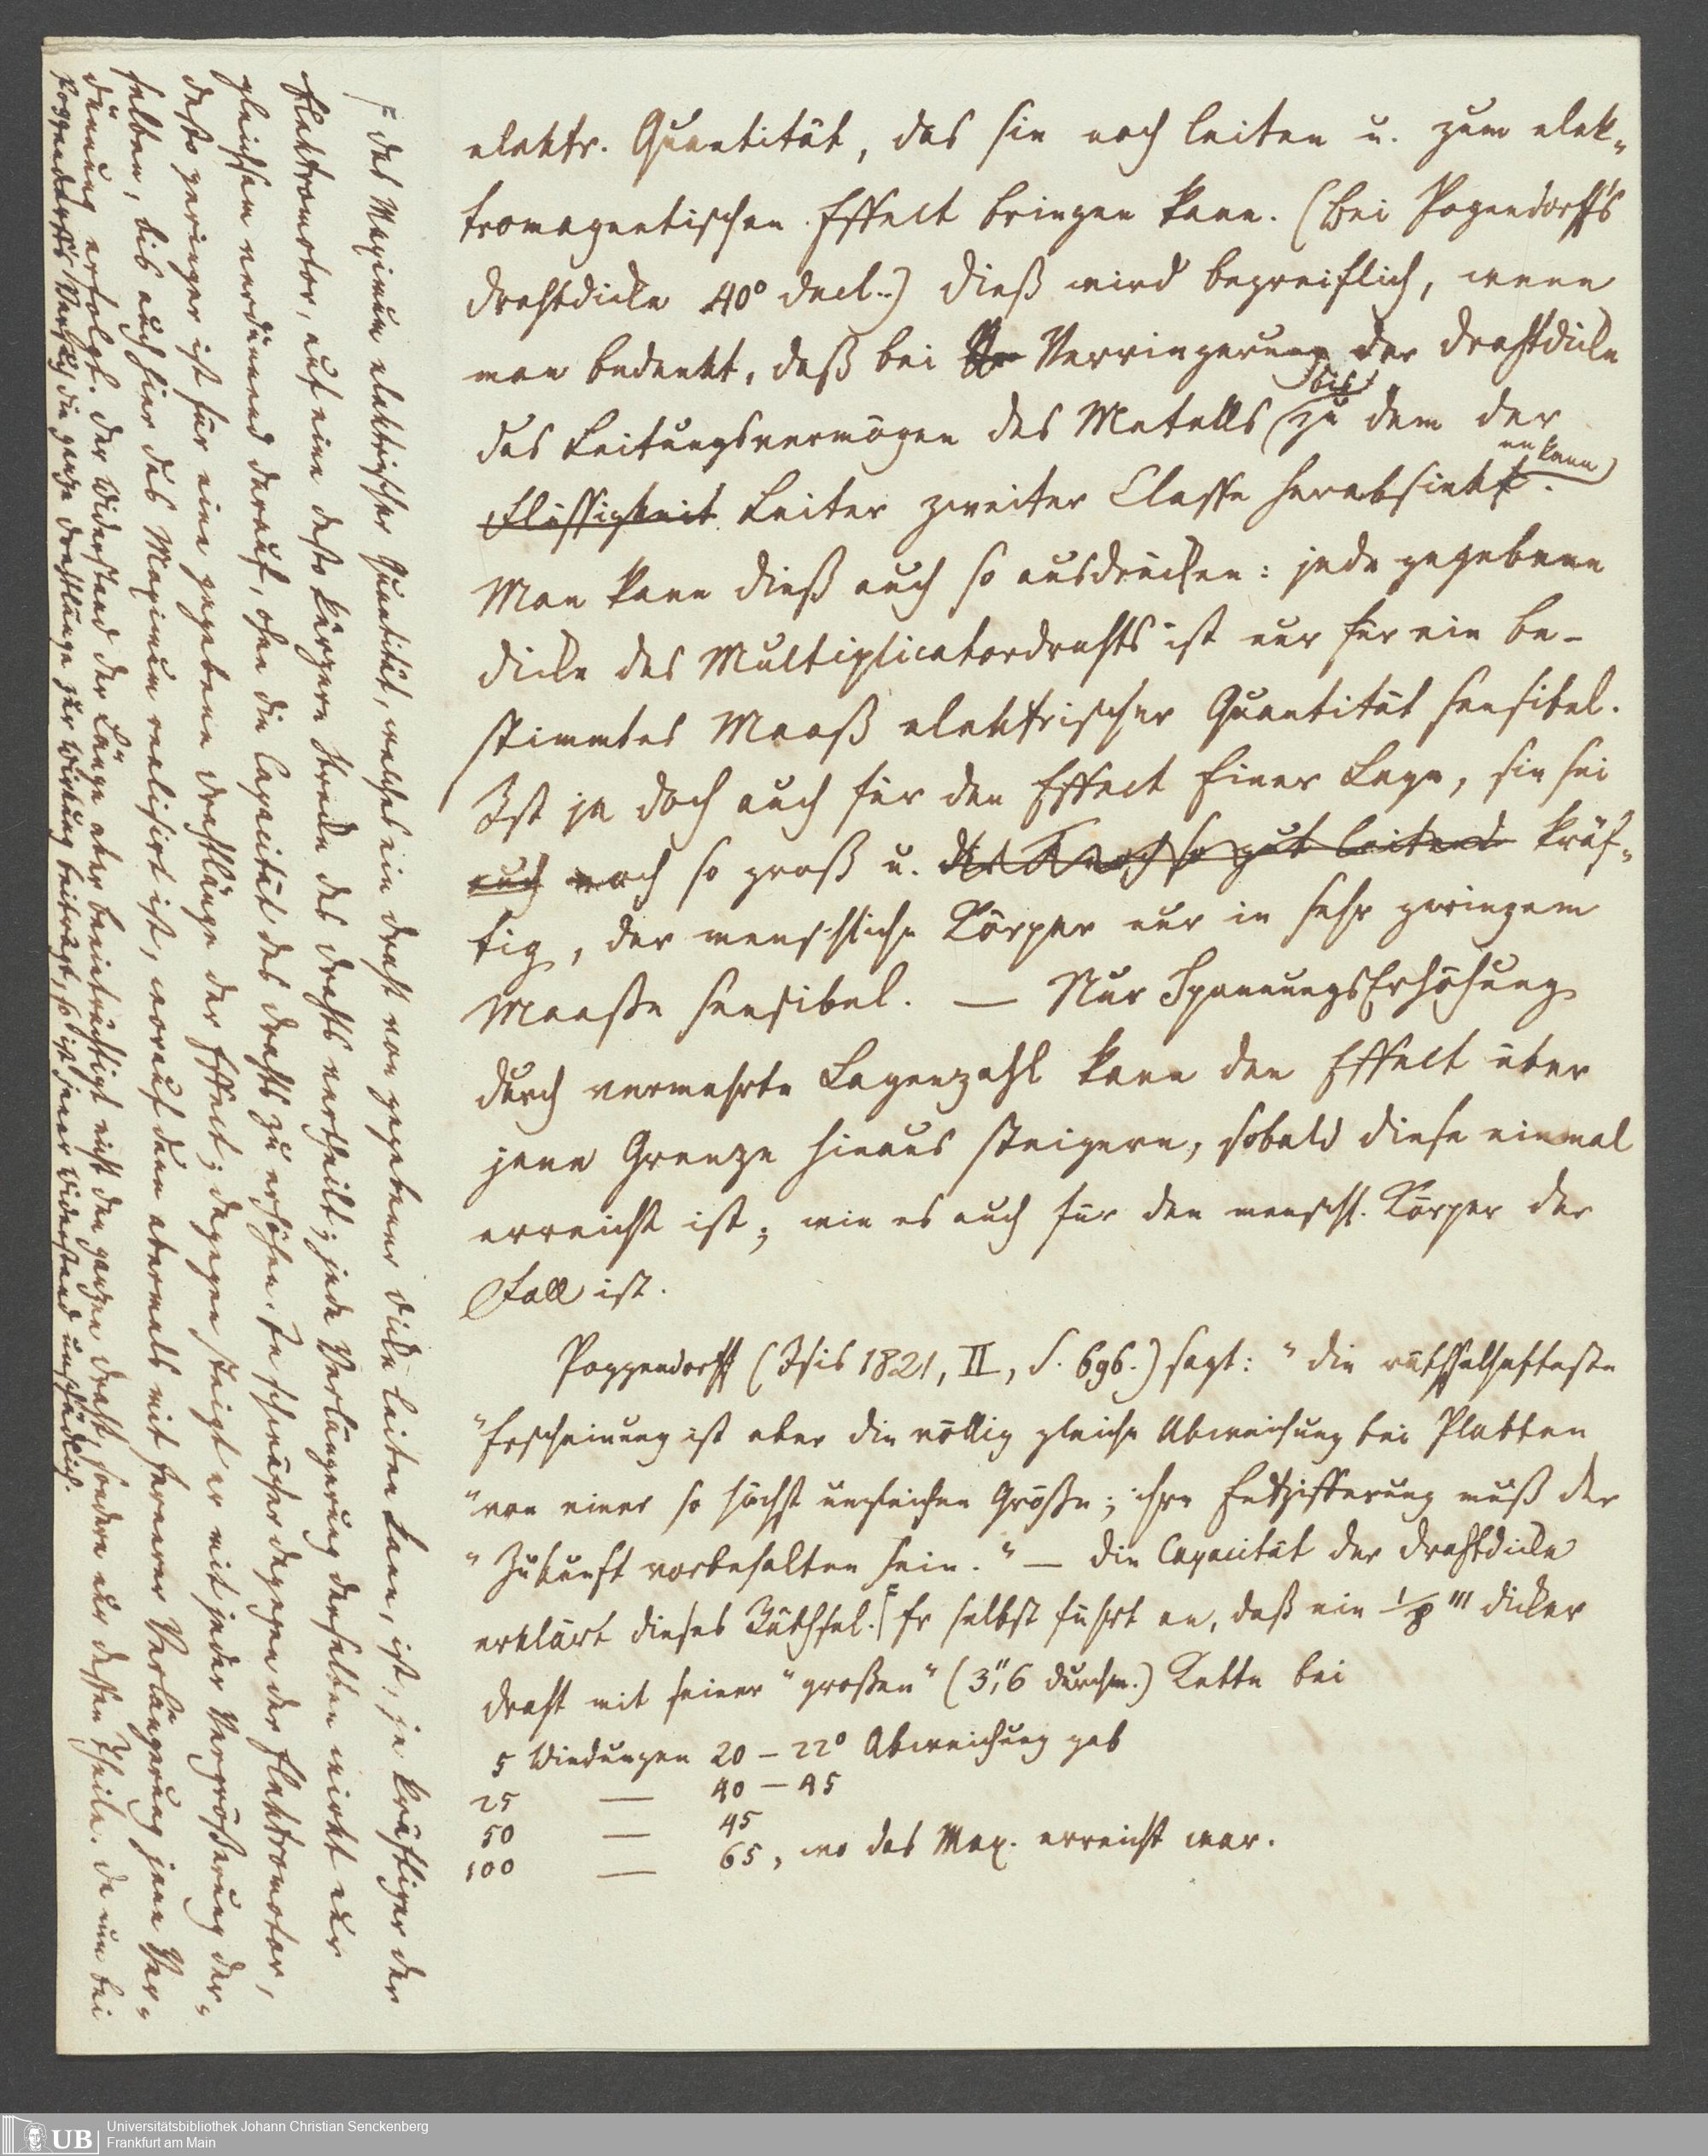 elektr. Quantität, das sie noch leiten u. zum elek-
tromagnetischen Effect bringen kann. (Bei Pogendorff's
Drahtdicke 40° Decl..) Dieß wird begreiflich, wenn
man bedenkt, daß bei Verringerung der Drahtdicke
das Leitungsvermögen des Metalls bis zu dem der
Flüssigkeit Leiter zweiter Classe herabsinken kann.
Man kann dieß auch so ausdrücken: jede gegebene
Dicke des Multiplicatordrahts ist nur für ein be-
stimmtes Maaß elektrischer Quantität sensibel.
Ist ja doch auch für den Effect Einer Lage, sie sei
auch noch so groß u. noch so gut leitend kräf-
tig, der menschliche Körper nur in sehr geringem
Maaße sensibel. — Nur SpannungsErhöhung
durch vermehrte Lagenzahl kann den Effect über
jene Grenze hinaus steigern, sobald diese einmal
erreicht ist; wie es auch für den menschl. Körper der
Fall ist.
Poggendorff (Isis 1821, II, S. 696.) sagt: "die räthselhafteste
"Erscheinung ist aber die völlig gleiche Abweichung bei Platten
"von einer so höchst ungleichen Größe; ihre Entzifferung muß der
"Zukunft vorbehalten sein." — Die Capacität der Drahtdicke
erklärt dieses Räthsel. Er selbst führt an, daß ein 1/8''' dicker
Draht mit seiner "großen" (3",6 Durchm.) Kette bei
5 Windungen 20 – 22° Abweichung gab
25 — 40 – 45
50 — 45
100 — 65, wo das Max. erreicht war.
Das Maximum elektrischer Quantität, welches ein Draht von gegebener Dicke leiten kann, ist, je kräftiger der
Elektromotor, auf eine desto kürzere Strecke des Drahts vertheilt; jede Verlängerung derselben wirkt nur
gleichsam verdünnend darauf, ohne die Capacität des Drahts zu erhöhen. Je schwächer dagegen der Elektromotor,
desto geringer ist für eine gegebene Drahtlänge der Effect; dagegen steigt er mit jeder Vergrößerung der-
selben, bis auch hier das Maximum realisirt ist, worauf dann abermals mit fernerer Verlängerung jene Ver-
dünnung erfolgt. Der Widerstand der Länge aber beeinträchtigt nicht den ganzen Draht, sondern nur dessen Theile. Da nun bei
Poggendorff's Versuch die ganze Drahtlänge zur Wirkung beiträgt, so ist jener Widerstand unschädlich.
Universitätsbibliothek Johann Christian Senckenberg
Frankfurt am Main
UB